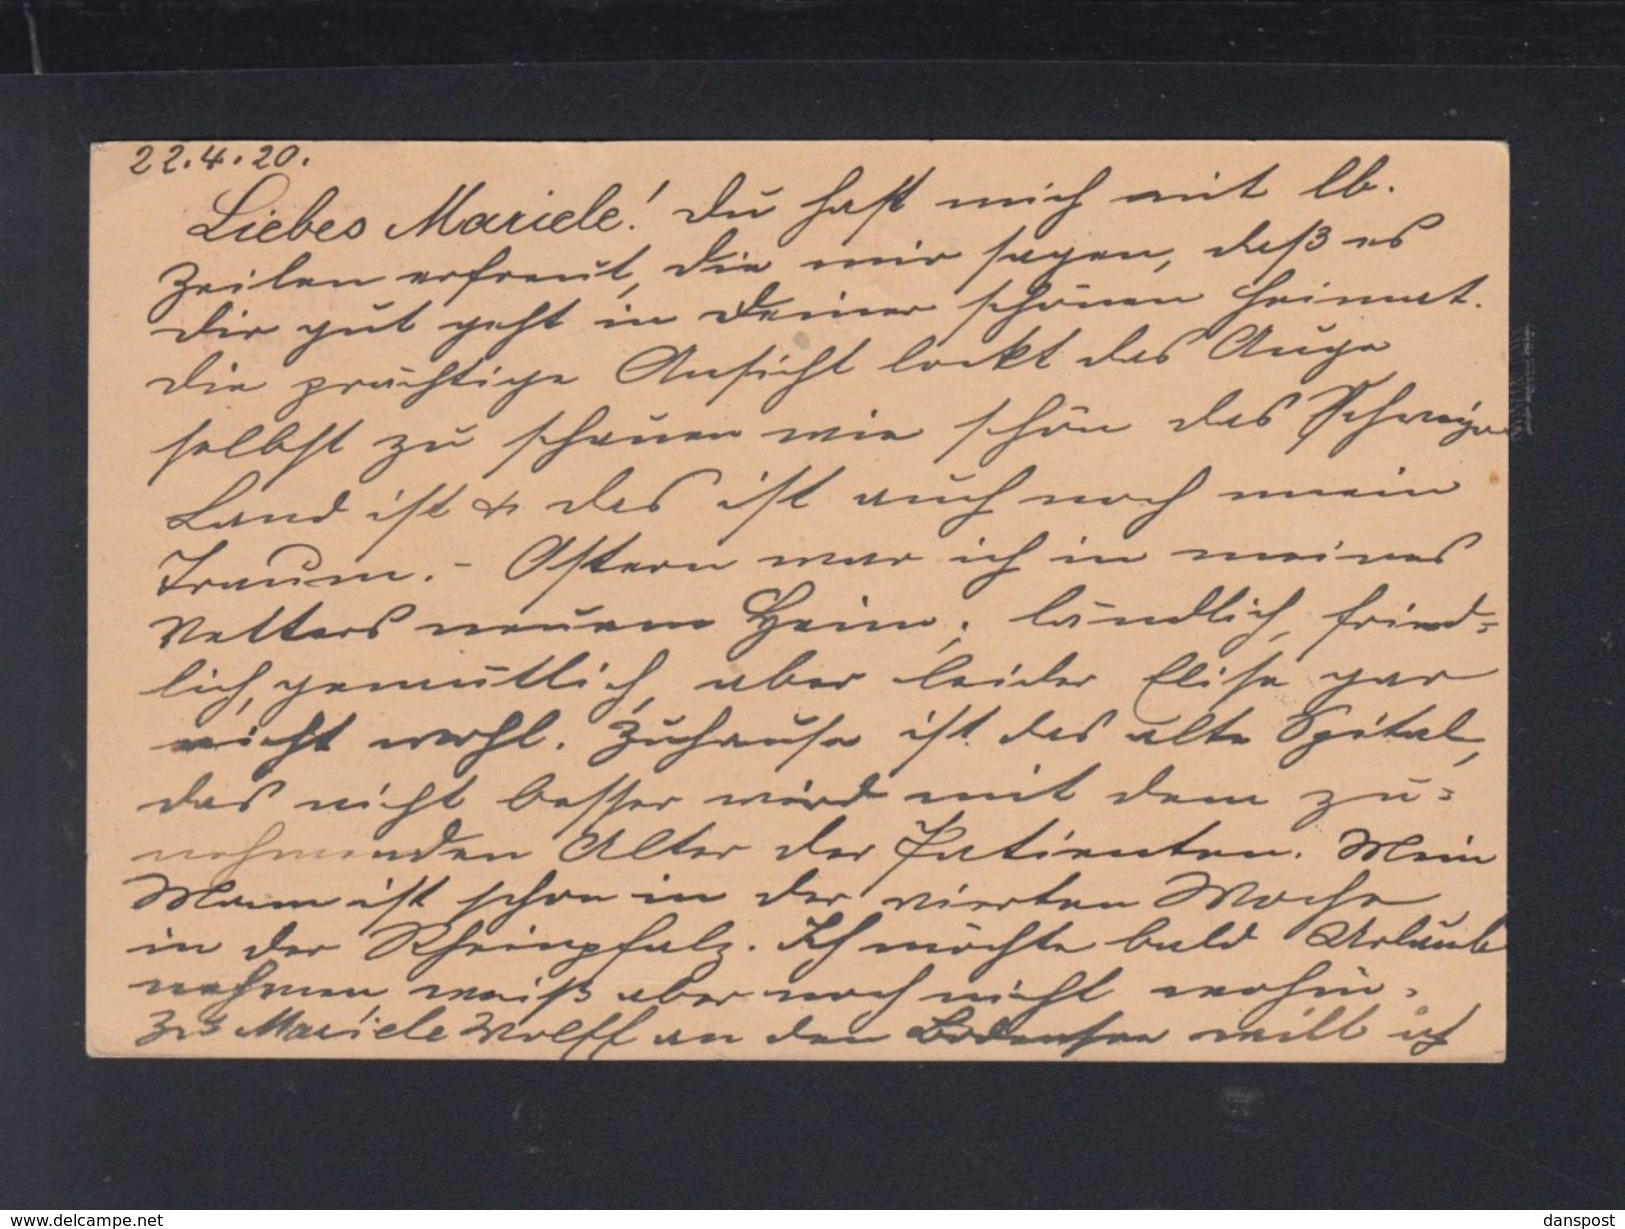 22.4.20.
Liebes Mariele! Du hast mich mit lb.
Zeilen erfreut, die mir sagen, daß es
Dir gut geht in Deiner schönen Heimat.
Die prächtige Ansicht lockt das Auge
selbst zu schauen wie schön das Schweizer
Land ist & das ist auch noch mein
Traum. - Ostern war ich in meines
Vetters neuem Heim, ländlich, fried=
lich, gemütlich, aber leider Elise gar
nicht wohl. Zuhause ist das alte Spital,
das nicht besser wird mit dem zu=
nehmenden Alter der Patienten. Mein
Mann ist schon in der vierten Woche
in der Rheinpfalz. Ich möchte bald Urlaub
nehmen, weiß aber noch nicht wohin.
Zu Mariele Wolff an den Bodensee will ich
delcampe.net
danspost